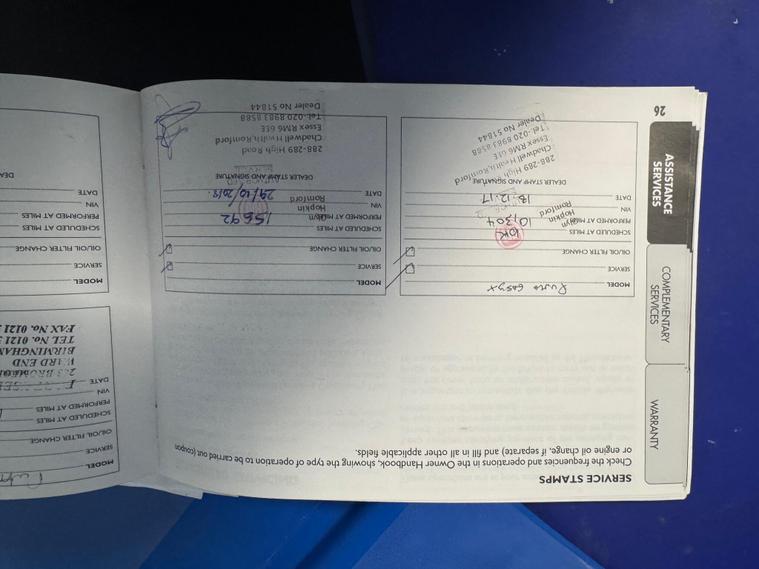 SERVICE STAMPS
Check the frequencies and operations in the Owner Handbook, showing the type of operation to be carried out (coupon
or engine oil change, if separate) and fill in all other applicable fields.
WARRANTY
COMPLEMENTARY
SERVICES
ASSISTANCE
SERVICES
26
MODEL
SERVICE
OIL/OIL FILTER CHANGE
SCHEDULED AT MILES 10K
PERFORMED AT MILES 10,304
VIN
DATE 13.12.17
Glyn
Hopkin
Romford
DEALER STAMP AND SIGNATURE
288-289 High Road
Chadwell Heath, Romford
Essex RM6 6EE
Tel: 020 8983 8588
Dealer No 51844
MODEL
SERVICE
OIL/OIL FILTER CHANGE
SCHEDULED AT MILES
PERFORMED AT MILES 15692
VIN
DATE 29/10/2018
Glyn
Hopkin
Romford
DEALER STAMP AND SIGNATURE
288-289 High Road
Chadwell Heath, Romford
Essex RM6 6EE
Tel: 020 8983 8588
Dealer No 51844
MODEL
SERVICE
OIL/OIL FILTER CHANGE
SCHEDULED AT MILES
PERFORMED AT MILES
VIN
DATE
WARD END
BIRMINGHAM
TEL No. 0121
FAX No. 0121
SERVICE
OIL/OIL FILTER CHANGE
SCHEDULED AT MILES
PERFORMED AT MILES
VIN
DATE